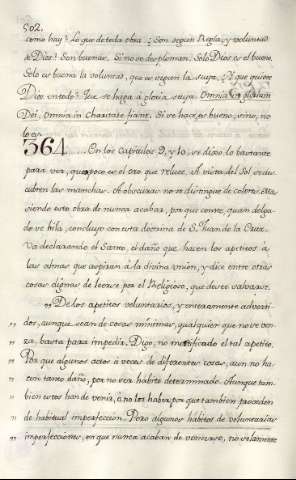 502.
como hay? Lo que de toda obra. ¿Son segun Regla, y voluntad
de Dios? Son buenas. Si no se desploman. Solo Dios es el bueno.
Solo es buena la voluntad, que se segun la suya. ¿Y que quiere
Dios en todo? Que se haga á gloria suya. Omnia in gloriam
Dei. Omnia in Charitate fiant. Si se hace, es bueno, sino, no
lo es.
364 .... En los Capitulos 9, y 10, se dixo lo bastante
para ver, que poco es el oro que reluce. A vista del Sol se des-
cubren las manchas. A obscuras no se distingue de colores. Mas
siendo esta obra de nunca acabar, por que conste, quan delga-
do se hila, concluyo con esta doctrina de S. Juan de la Cruz.
Va declarando el Santo, el daño que hacen los apetitos á
las almas que aspiran á la divina union, y dice entre otras
cosas dignas de leerse por el Religioso, que desee salvarse.
De los apetitos voluntarios, y enteramente adverti-
" dos, aunque sean de cosas minimas, qualquier que no se ven-
" za, basta para impedir. Digo, no mortificado el tal apetito.
" Por que algunos actos á veces de diferentes cosas, aun no ha-
" cen tanto daño, por no ser habito determinado. Aunque tam-
" bien estos han de venir, á no los haber, por que tambien proceden
" de habitual imperfeccion. Pero algunos habitos de voluntarias
" imperfecciones, en que nunca acaban de vencerse, no solamente